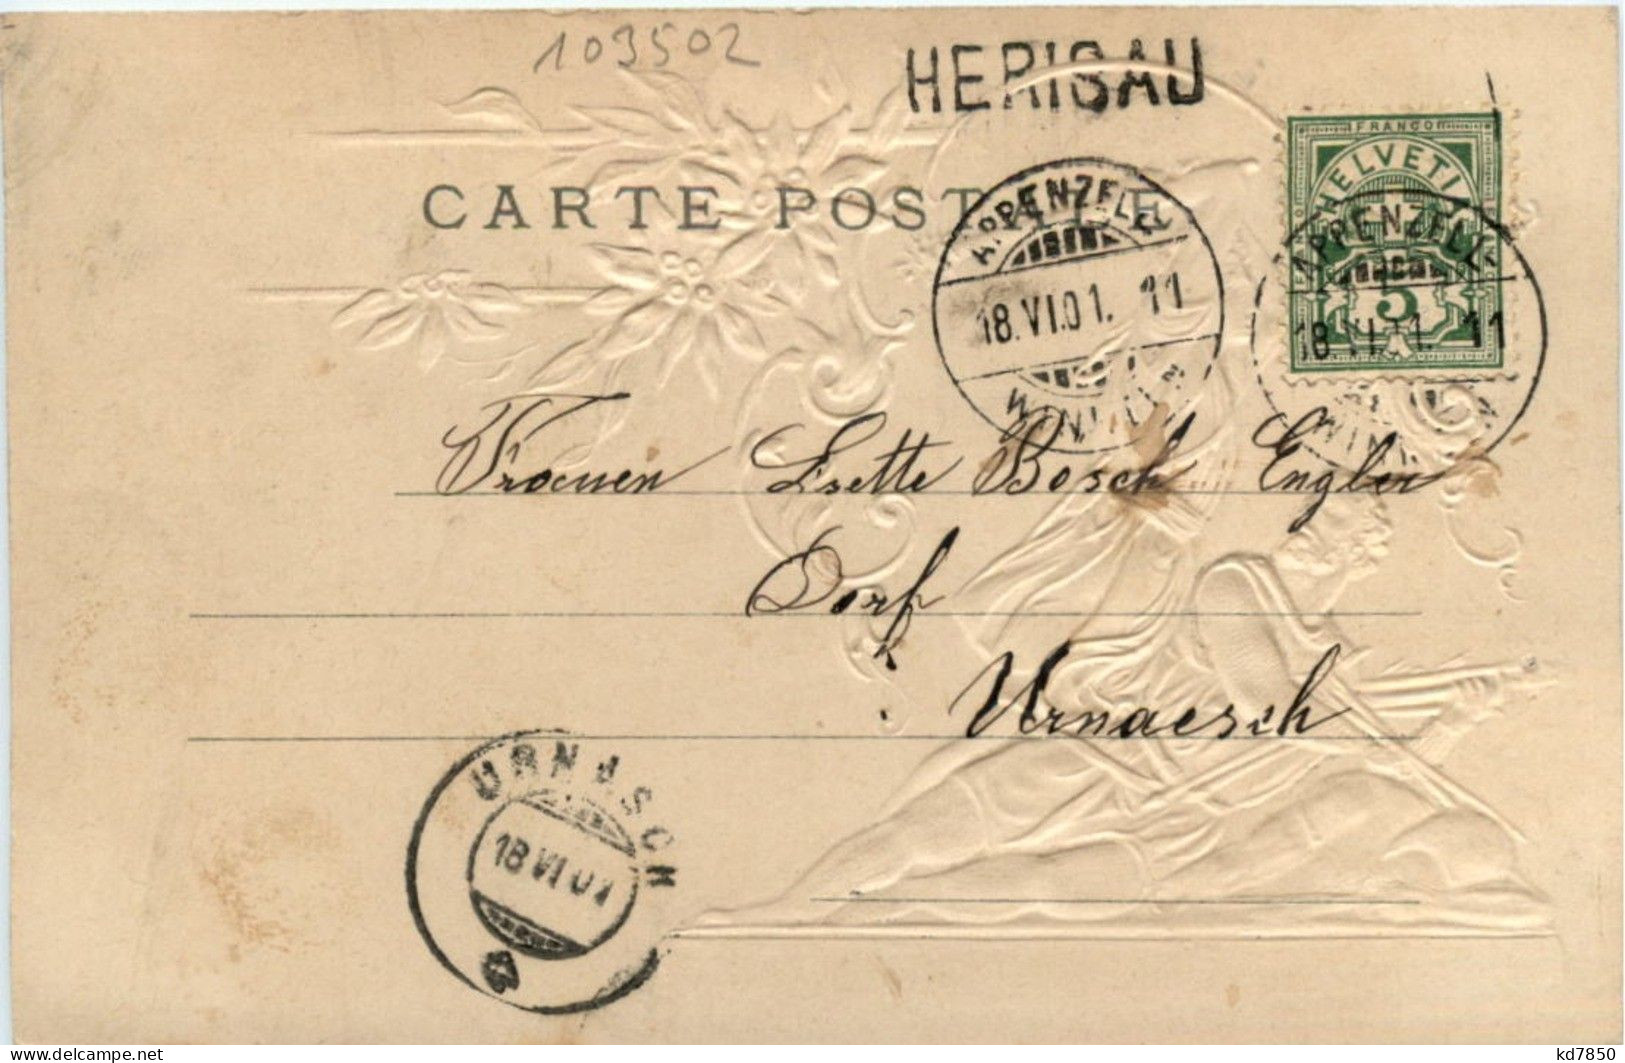 109502
HERISAU
FRANCO
HELVETIA
5
CARTE POSTALE
APPENZELL
18.VI.01. 11
APPENZELL
18.VI.01. 11
Frauen Lisette Bosch Engler
Dorf
Urnaesch
URNÄSCH
18 VI 01
delcampe.net
kd7850